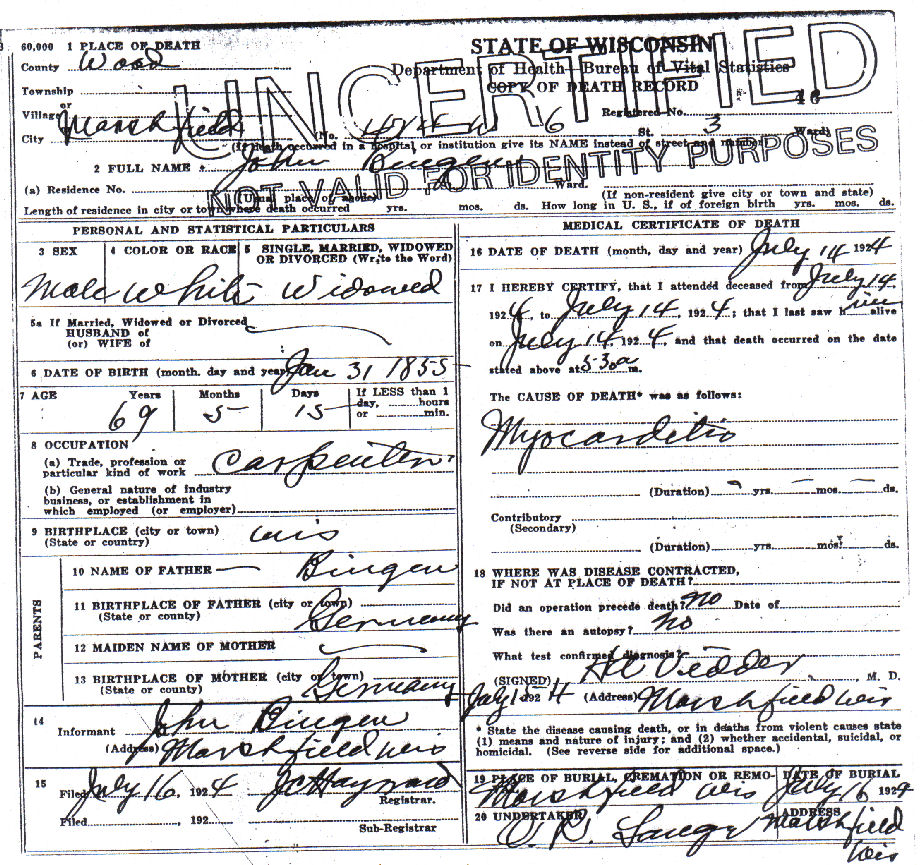 60,000 1 PLACE OF DEATH
STATE OF WISCONSIN
County Wood
Department of Health—Bureau of Vital Statistics
COPY OF DEATH RECORD
Township
or
Village
Registered No. 46
City Marshfield (No. St. 3 Ward)
(If death occurred in a hospital or institution give its NAME instead of street and number)
UNCERTIFIED
NOT VALID FOR IDENTITY PURPOSES
2 FULL NAME John Bingen
(a) Residence No. Ward.
(Usual place of abode) (If non-resident give city or town and state)
Length of residence in city or town where death occurred yrs. mos. ds. How long in U. S., if of foreign birth yrs. mos. ds.
PERSONAL AND STATISTICAL PARTICULARS
3 SEX 4 COLOR OR RACE 5 SINGLE, MARRIED, WIDOWED
OR DIVORCED (Write the Word)
Male White Widowed
5a If Married, Widowed or Divorced
HUSBAND of
(or) WIFE of
6 DATE OF BIRTH (month, day and year) Jan 31 1855
7 AGE Years Months Days If LESS than 1
day, hours
or min.
69 5 15
8 OCCUPATION
(a) Trade, profession or
particular kind of work Carpenter
(b) General nature of industry
business, or establishment in
which employed (or employer)
9 BIRTHPLACE (city or town)
(State or country) Wis
PARENTS
10 NAME OF FATHER — Bingen
11 BIRTHPLACE OF FATHER (city or town)
(State or county) Germany
12 MAIDEN NAME OF MOTHER
13 BIRTHPLACE OF MOTHER (city or town)
(State or county) Germany
14
Informant John Bingen
(Address) Marshfield Wis
15
Filed July 16, 1924 J C Hayward
Registrar.
Filed , 192
Sub-Registrar
MEDICAL CERTIFICATE OF DEATH
16 DATE OF DEATH (month, day and year) July 14 1924
17 I HEREBY CERTIFY, that I attended deceased from July 14
1924, to July 14, 1924; that I last saw him alive
on July 14, 1924, and that death occurred on the date
stated above at 5 30 a m.
The CAUSE OF DEATH* was as follows:
Myocarditis
(Duration) yrs. mos. ds.
Contributory
(Secondary)
(Duration) yrs. mos. ds.
18 WHERE WAS DISEASE CONTRACTED,
IF NOT AT PLACE OF DEATH?
Did an operation precede death? no Date of
Was there an autopsy? no
What test confirmed diagnosis?
(SIGNED) H C Vedder, M. D.
July 15 1924 (Address) Marshfield Wis
* State the disease causing death, or in deaths from violent causes state
(1) means and nature of injury; and (2) whether accidental, suicidal, or
homicidal. (See reverse side for additional space.)
19 PLACE OF BURIAL, CREMATION OR REMO- DATE OF BURIAL
Marshfield Wis July 16 1924
20 UNDERTAKER ADDRESS
Lange Marshfield
Wis